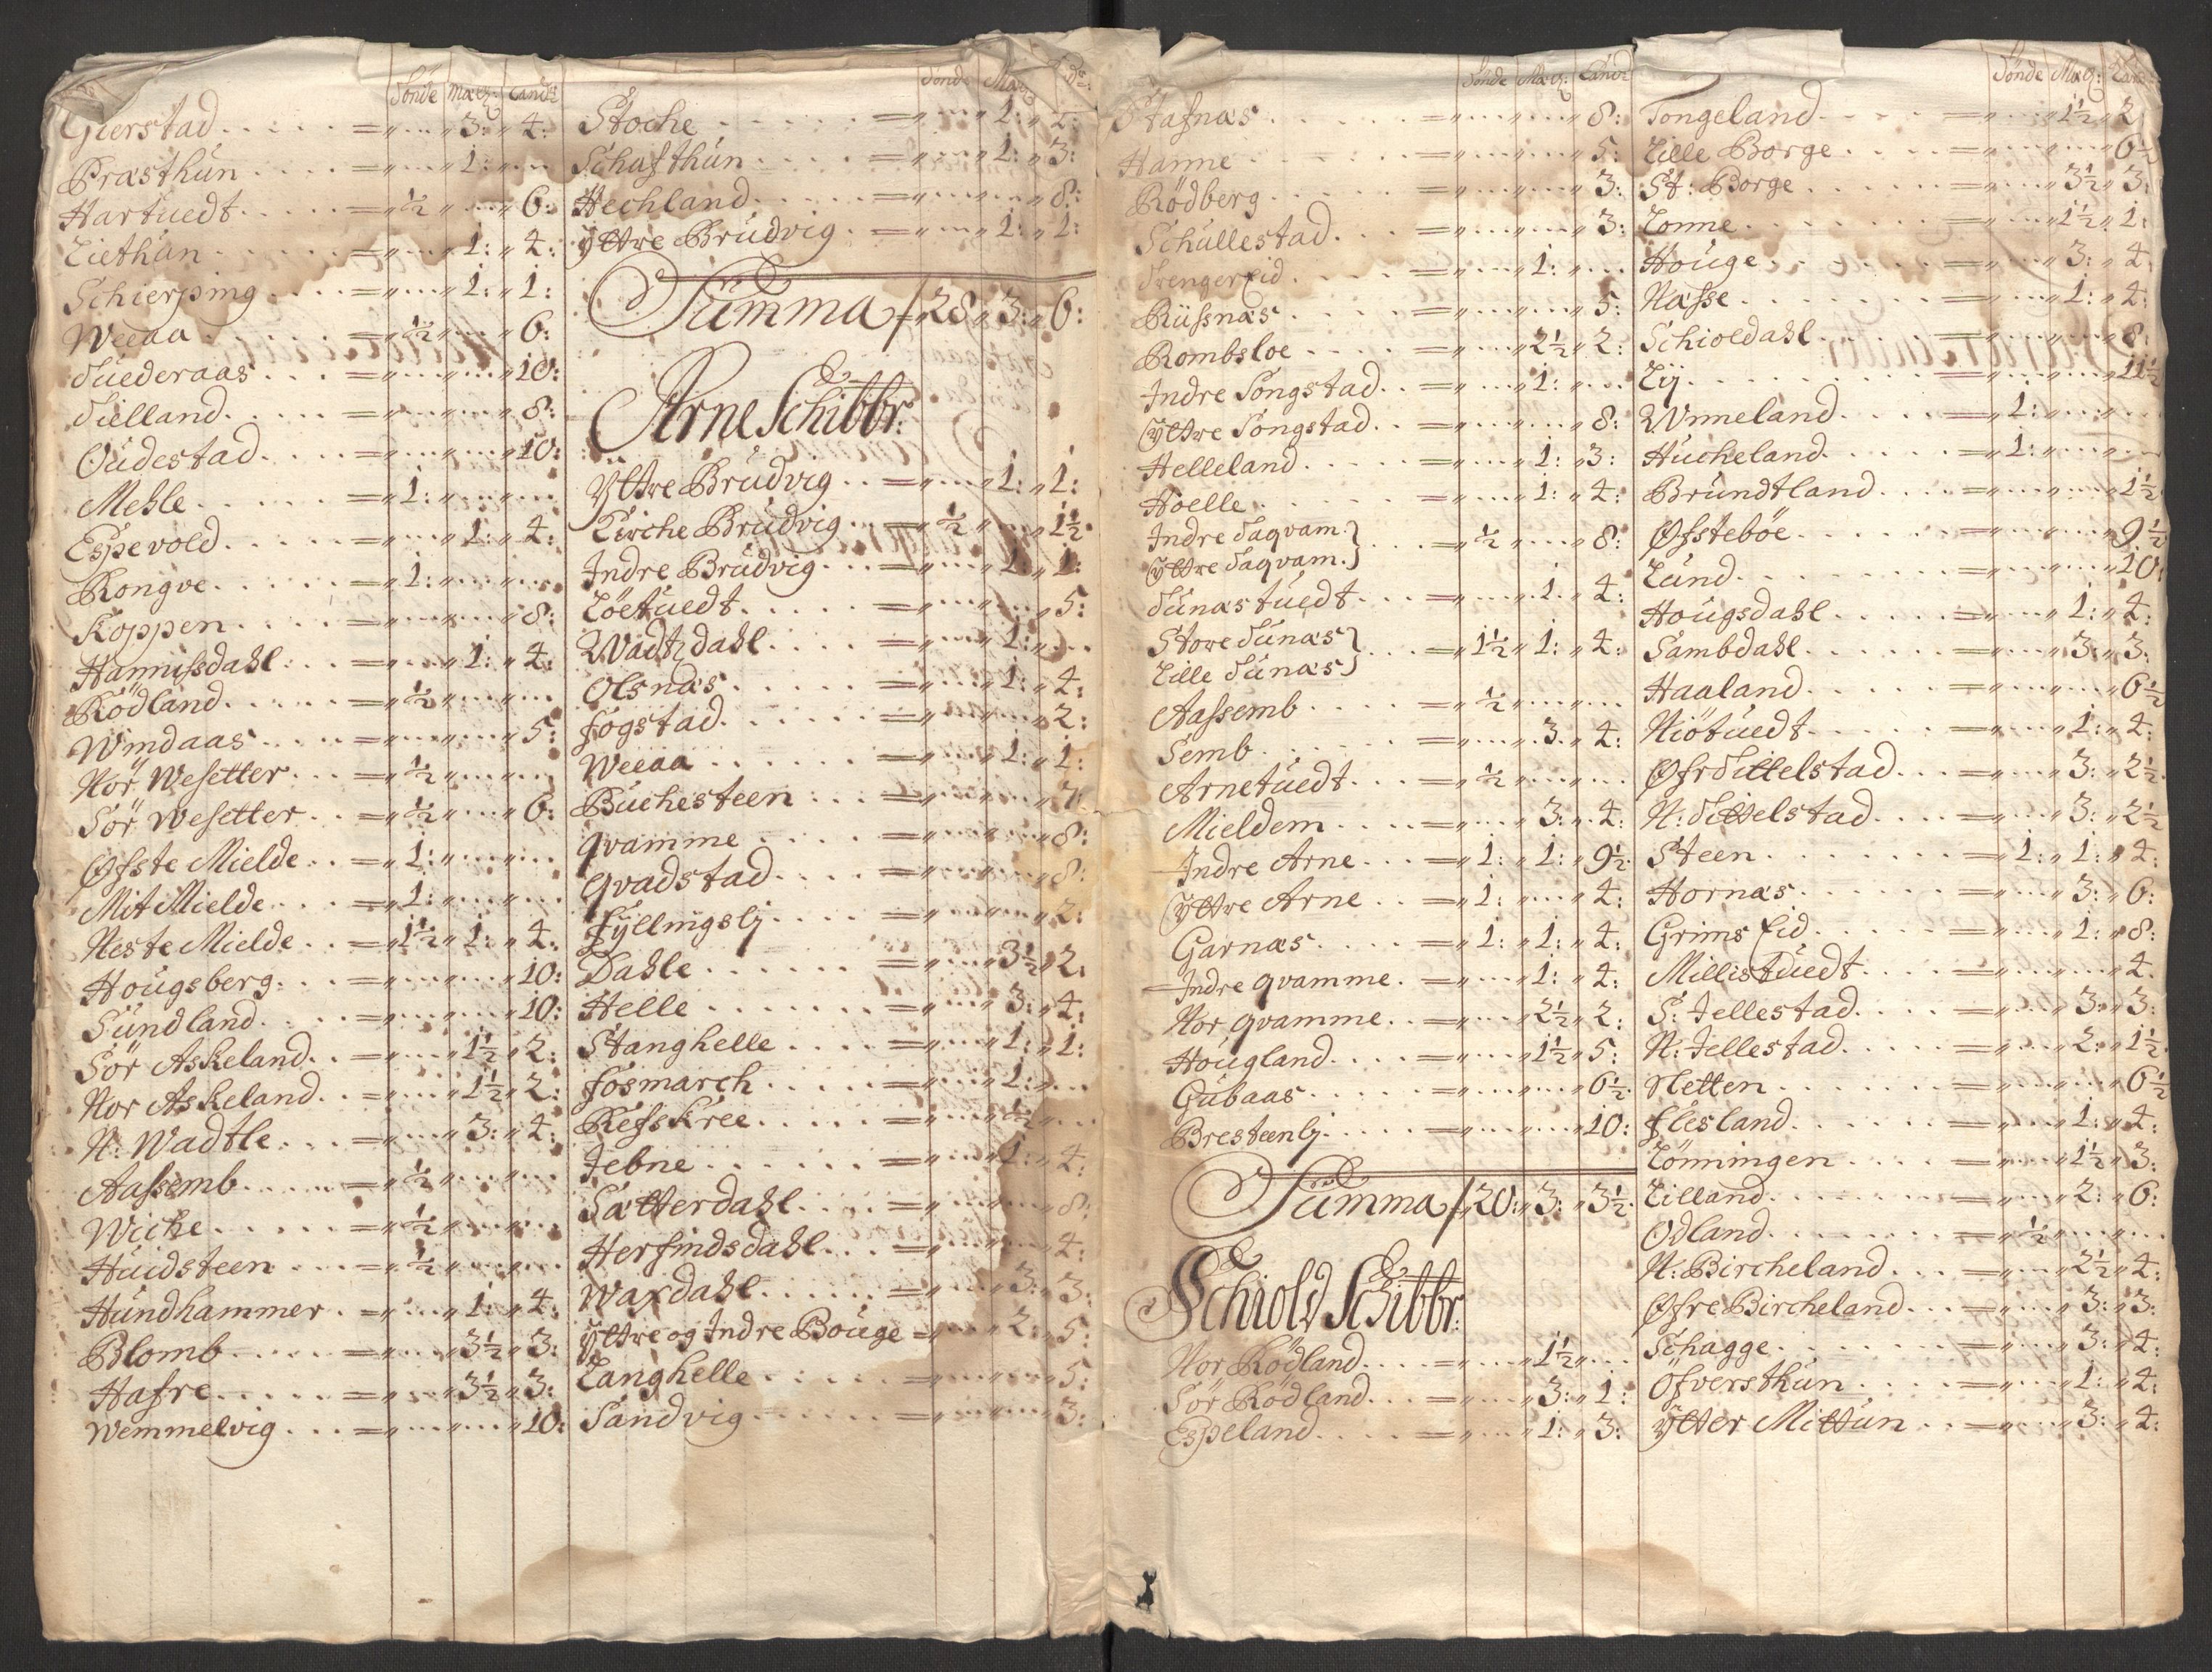 Tönde Mæl: Cand:
Gierstad. . . . . = „ .... „ 3: „ 4:
Præsthün. . . . = „ .... „ 1: „ ....
Hartuedt. . . . . = „ ½ „ .... „ 6:
Liethün. . . . . = „ .... „ 1: „ 4:
Schierping. . . . = „ .... „ 1: „ 1:
Weeaa. . . . . = „ ½ „ .... „ 6:
Tuederaas. . . . = „ .... „ .... „ 10:
Tülland. . . . . = „ .... „ .... „ 8:
Oudestad. . . . . = „ .... „ .... „ 10:
Mehle. . . . . = „ 1: „ .... „ ....
Espevold. . . . . = „ .... „ 1: „ 4:
Rongve. . . . . = „ 1: „ .... „ ....
Koppen. . . . . = „ .... „ .... „ 8:
Hannissdahl. . . = „ .... „ 1: „ 4:
Rödland. . . . . = „ ½ „ .... „ ....
Windaas. . . . . = „ .... „ .... „ 5:
Nor Wesetter. . . = „ ½ „ .... „ ....
Sör Wesetter. . = „ ½ „ .... „ 6:
Øfste Mielde. . = „ 1: „ .... „ ....
Mit Mielde. . . = „ 1: „ .... „ ....
Neste Mielde. . = „ 1½ „ 1: „ 4:
Hougsberg. . . . = „ .... „ .... „ 10:
Sündland. . . . = „ .... „ .... „ 10:
Sör Askeland. . = „ .... „ 1½ „ 2:
Nor Askeland. . = „ .... „ 1½ „ 2:
N: Wadtle. . . = „ .... „ 3: „ 4:
Aassemb. . . . . = „ ½ „ .... „ ....
Wiche. . . . . = „ ½ „ .... „ ....
Huidsteen. . . = „ ½ „ .... „ ....
Hündhammer. = „ .... „ 1: „ 4:
Blomb. . . . . = „ .... „ 3½ „ 3:
Hafre. . . . . = „ .... „ 3½ „ 3:
Wemmelvig. . . = „ .... „ .... „ 10:
Tönde Mæl:
Stoche . . . . . = „ .... „ 1: „ 4:
Schafthün. . . . = „ .... „ 1: „ 3:
Hechland. . . . . = „ .... „ .... „ 8:
Yttre Brüdvig. = „ .... „ 1: „ 1:
Summa / „ 28 „ 3: „ 6:
Arne Schibbr:
Yttre Brüdvig. . = „ .... „ 1: „ 1:
Kirche Brüdvig. . = „ ½ „ .... „ 1½.
Indre Brüdvig. . . = „ .... „ 1: „ 1:
Löetuedt. . . . . = „ .... „ .... „ 5:
Wadtzdahl. . . . = „ .... „ 1: „ ....
Olsnæs. . . . . = „ .... „ 1: „ 4:
Fogstad. . . . . = „ .... „ .... „ 2:
Weeaa. . . . . = „ .... „ 1: „ 1:
Buchesteen . . . = „ .... „ .... „ 7:
Qvamme . . . . = „ .... „ .... „ 8:
Qvadstad. . . . = „ .... „ .... „ 8:
Fyllingslj. . . . = „ .... „ .... „ 2:
Dahle. . . . . = „ .... „ 3½ „ 2:
Helle . . . . . = „ .... „ 3: „ 4:
Stanghelle . . . . = „ .... „ 1: „ 1:
Fosmarch. . . . . = „ .... „ 1: „ ....
Refskree. . . . . = „ .... „ 1½ „ ....
Jebne. . . . . = „ .... „ 1: „ 4:
Sætterdahl. . . . = „ .... „ .... „ 8:
Herfindsdahl. . . = „ .... „ .... „ 4:
Waxdahl. . . . . = „ .... „ 3: „ 3:
Yttre og Indre Bouge = „ .... „ 2: „ 5:
Langhelle. . . . = „ .... „ .... „ 5:
Sandvig. . . . . = „ .... „ .... „ 3:
Tönde Mæl: Cand:
Stafnæs. . . . . = „ .... „ .... „ 8:
Hanne . . . . . = „ .... „ .... „ 5:
Rödberg. . . . . = „ .... „ .... „ 3:
Schüllestad. . . = „ .... „ .... „ 3:
Trengereid. . . . = „ .... „ 1: „ ....
Rüssnæs. . . . . = „ .... „ .... „ 5:
Rombsloe . . . . = „ .... „ 2½ „ 2:
Indre Songstad. . = „ .... „ 1: „ ....
Yttre Songstad. . = „ .... „ .... „ 8:
Helleland. . . . = „ .... „ 1: „ 3:
Hoelle. . . . . = „ .... „ 1: „ 4:
Indre Taqvam.} . . . = „ ½ „ .... „ 8:
Yttre Taqvam.}
Tunæstuedt. . . = „ .... „ 1. „ 4:
Store Tunæs} . . . = „ 1½ „ 1: „ 4:
Lille Tunæs}
Aassemb. . . . . = „ ½ „ .... „ ....
Semb. . . . . = „ .... „ 3. „ 4:
Arnetuedt. . . = „ ½ „ .... „ ....
Mieldem. . . . = „ .... „ 3: „ 4:
Indre Arne. . . = „ 1: „ 1: „ 9½.
Yttre Arne . . = „ 1: „ .... „ 4:
Garnæs. . . . . = „ 1: „ 1: „ 4:
Indre Qvamme. = „ .... „ 1: „ 4:
Nor Qvamme. . = „ .... „ 2½ „ 2:
Hougland. . . . = „ .... „ 1½ „ 5:
Gübaas. . . . . = „ .... „ .... „ 6½.
Bresteenlj. . . . = „ .... „ .... „ 10:
Summa / „ 20: „ 3: „ 3½.
Schiold Schibbr:
Nor Rödland. . . . = „ .... „ 1½ „ ....
Sör Rödland. . . = „ .... „ 3: „ 1:
Espeland. . . . = „ .... „ 1: „ 3:
Tönde Mæl: Cand:
Tongeland. . . . = „ .... „ 1½ „ 2
Lille Borge. . . . = „ .... „ .... „ 6½
St: Borge. . . . . = „ .... „ 3½ „ 3:
Lonne. . . . . = „ .... „ 1½ „ 1:
Houge. . . . . = „ .... „ 3: „ 4:
Næsse. . . . . = „ .... „ 1: „ 4:
Schioldahl. . . . = „ .... „ .... „ 8:
Lij. . . . . = „ .... „ .... „ 11½
Winneland. . . . = „ 1: „ .... „ ....
Hücheland. . . . = „ 1: „ .... „ ....
Bründtland. . . . = „ .... „ .... „ 1½
Øfsteböe. . . . . = „ .... „ .... „ 9½
Lünd. . . . . = „ .... „ .... „ 10:
Hougsdahl. . . . = „ .... „ 1: „ 4:
Sambdahl. . . . . = „ .... „ 3: „ 3:
Haaland. . . . . = „ .... „ .... „ 6½
Niötuedt. . . . . = „ .... „ 1: „ 4:
Øfr Tittelstad. . . = „ .... „ 3: „ 2½.
N: Tittelstad. . . . = „ .... „ 3: „ 2½
Steen. . . . . = „ 1: „ 1: „ 4:
Hornæs. . . . . = „ .... „ 3: „ 6:
Grims Eid. . . . . = „ .... „ 1: „ 8:
Millistuedt. . . . = „ .... „ .... „ 4.
S: Jellestad. . . . = „ .... „ 3: „ 3:
N: Jellestad. . . . = „ .... „ 2: „ 1½.
Netten. . . . . = „ .... „ .... „ 6½
Flesland. . . . . = „ .... „ 1: „ 4:
Lönningen. . . . = „ .... „ 1½ „ 3:
Lilland. . . . . = „ .... „ 2: „ 6:
Odland. . . . . = „ ½ „ .... „ ....
N: Bircheland. . . = „ .... „ 2½ „ 4:
Øfre Bircheland. . . = „ .... „ 3: „ 3:
Schagge. . . . . = „ .... „ 3: „ 4:
Öfversthün. . . . = „ .... „ 1: „ 4:
Ytter Mittün. . = „ .... „ 3: „ 4: